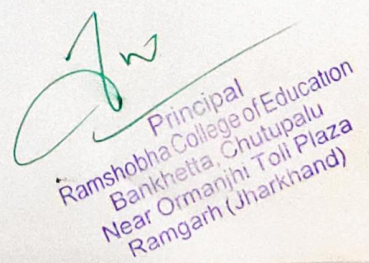 Principal
Ramshobha College of Education
Bankhetta, Chutupalu
Near Ormanjhi Toli Plaza
Ramgarh (Jharkhand)